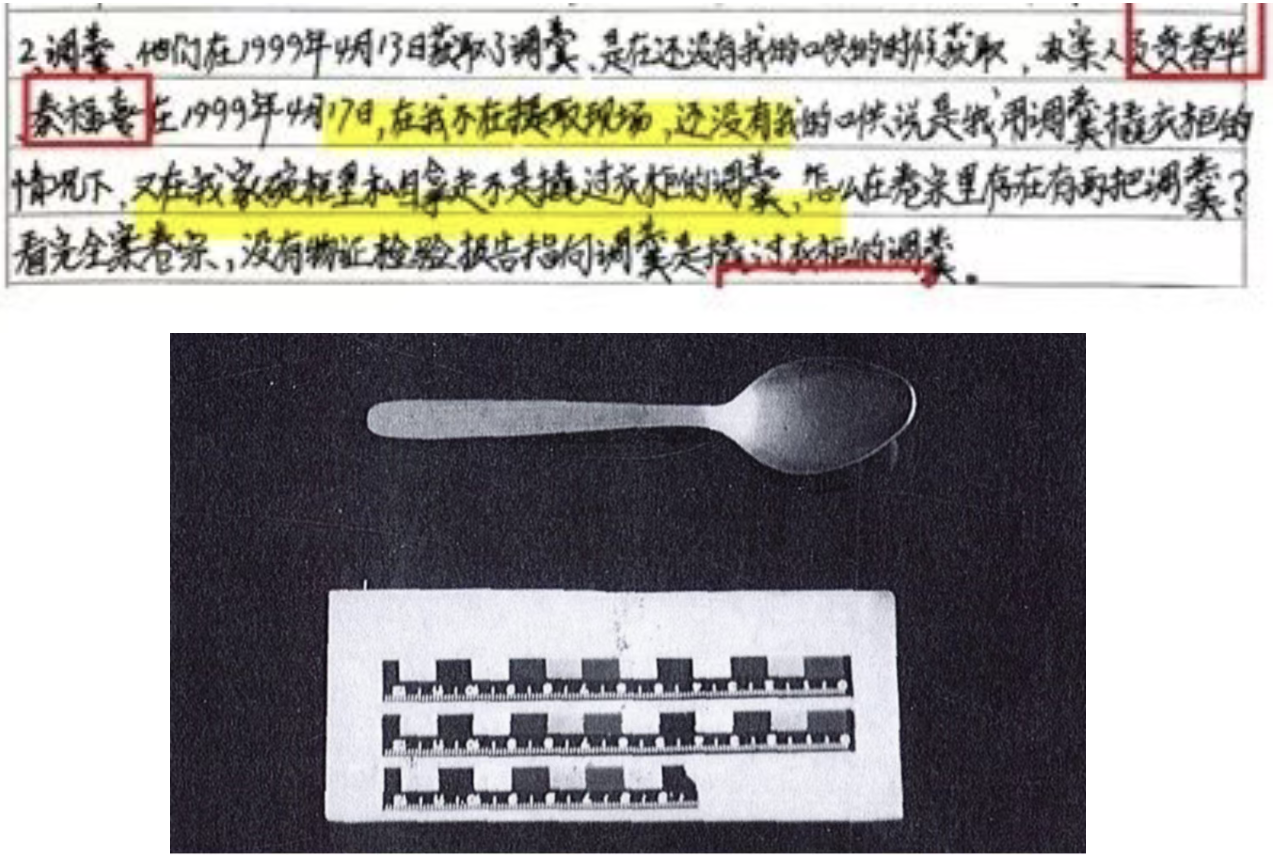 2、调羹、他们在1999年4月13日获取了调羹、是在还没有我的口供的时候获取，办案人员黄春华
、秦福喜在1999年4月17日，在我不在提取现场，还没有我的口供说是我用调羹撬衣柜的
情况下，又在我家碗柜里私自拿走不是撬过衣柜的调羹，怎么在卷宗里存在有两把调羹？
看完全案卷宗，没有物证检验报告指向调羹是撬过衣柜的调羹。